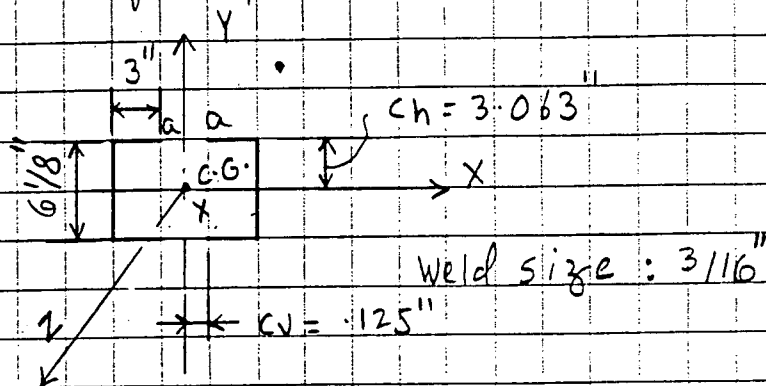 Y
3"
a a
Ch = 3.063"
6 1/8"
C.G.
X
X
Weld size : 3/16"
Z
CV = .125"